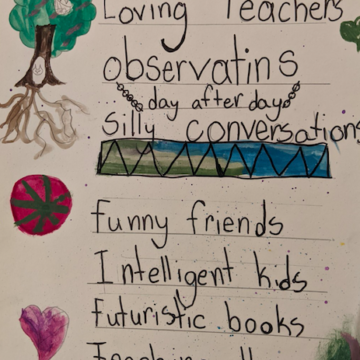 Loving Teachers
observatins
day after day
Silly conversations
funny friends
Intelligent kids
futuristic books